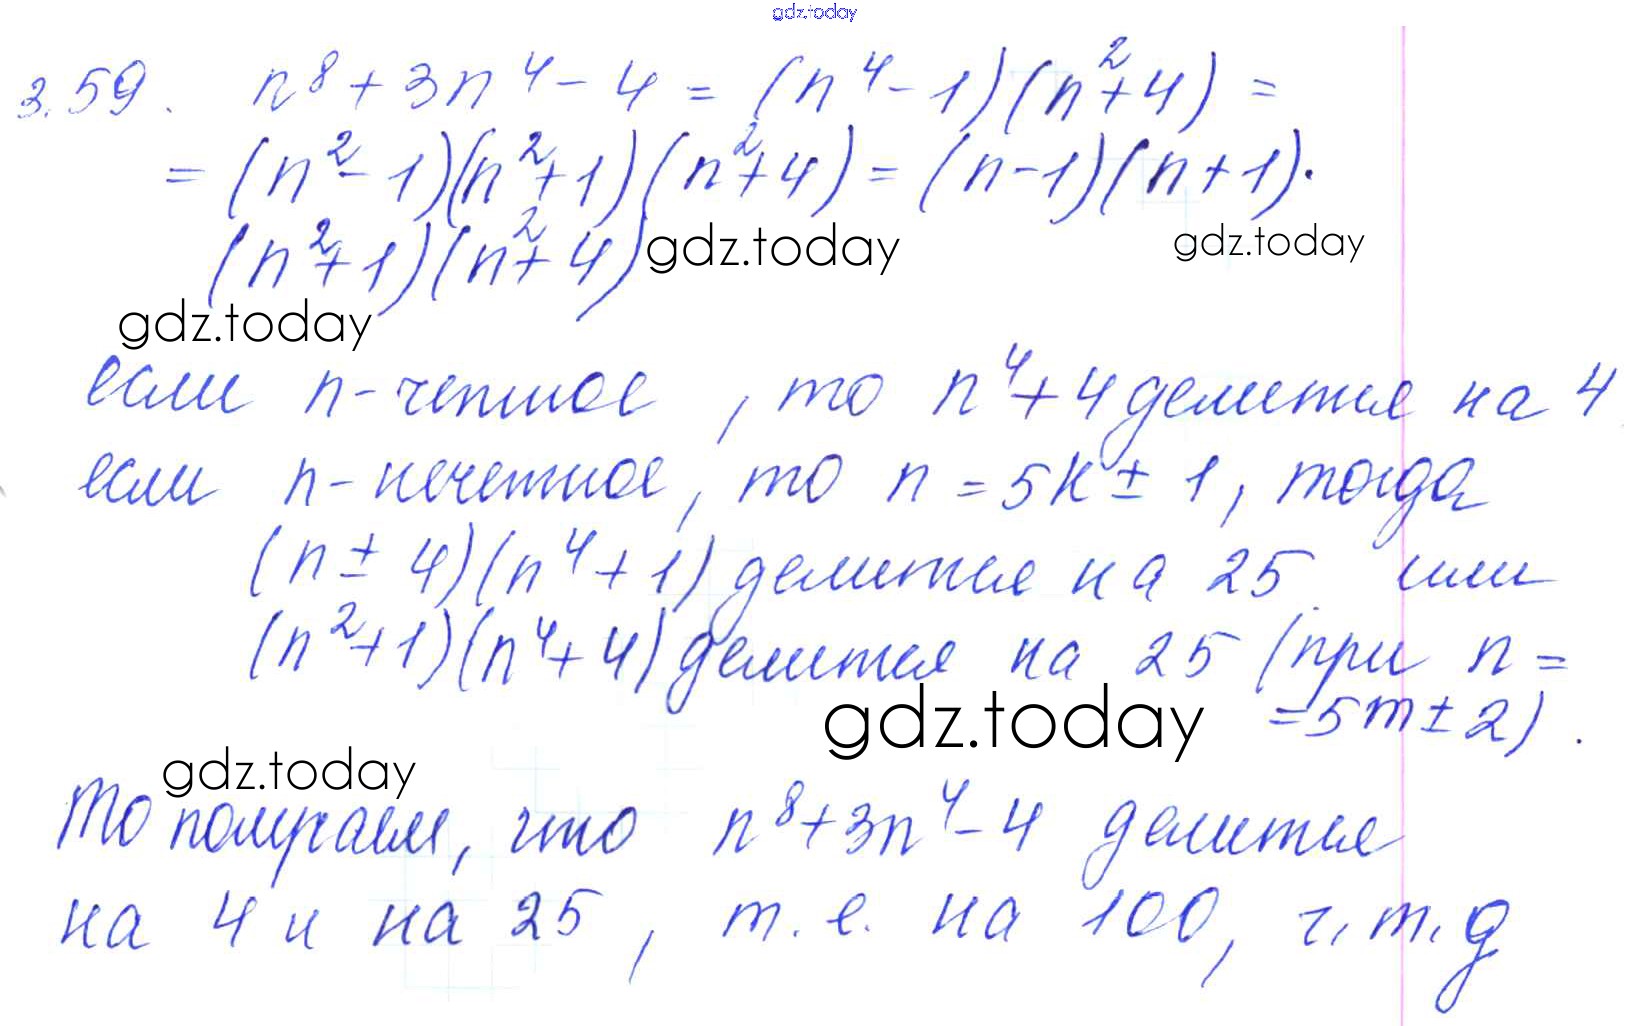 gdz.today
3.59. n⁸ + 3n⁴ - 4 = (n⁴ - 1)(n² + 4) =
= (n² - 1)(n² + 1)(n² + 4) = (n - 1)(n + 1)·
(n² + 1)(n² + 4)
gdz.today
gdz.today
gdz.today
если n - четное, то n⁴ + 4 делится на 4
если n - нечетное, то n = 5k ± 1, тогда
(n ± 4)(n⁴ + 1) делится на 25 или
(n² + 1)(n⁴ + 4) делится на 25 (при n =
= 5m ± 2).
gdz.today
gdz.today
То получаем, что n⁸ + 3n⁴ - 4 делится
на 4 и на 25, т.е. на 100, ч.т.д